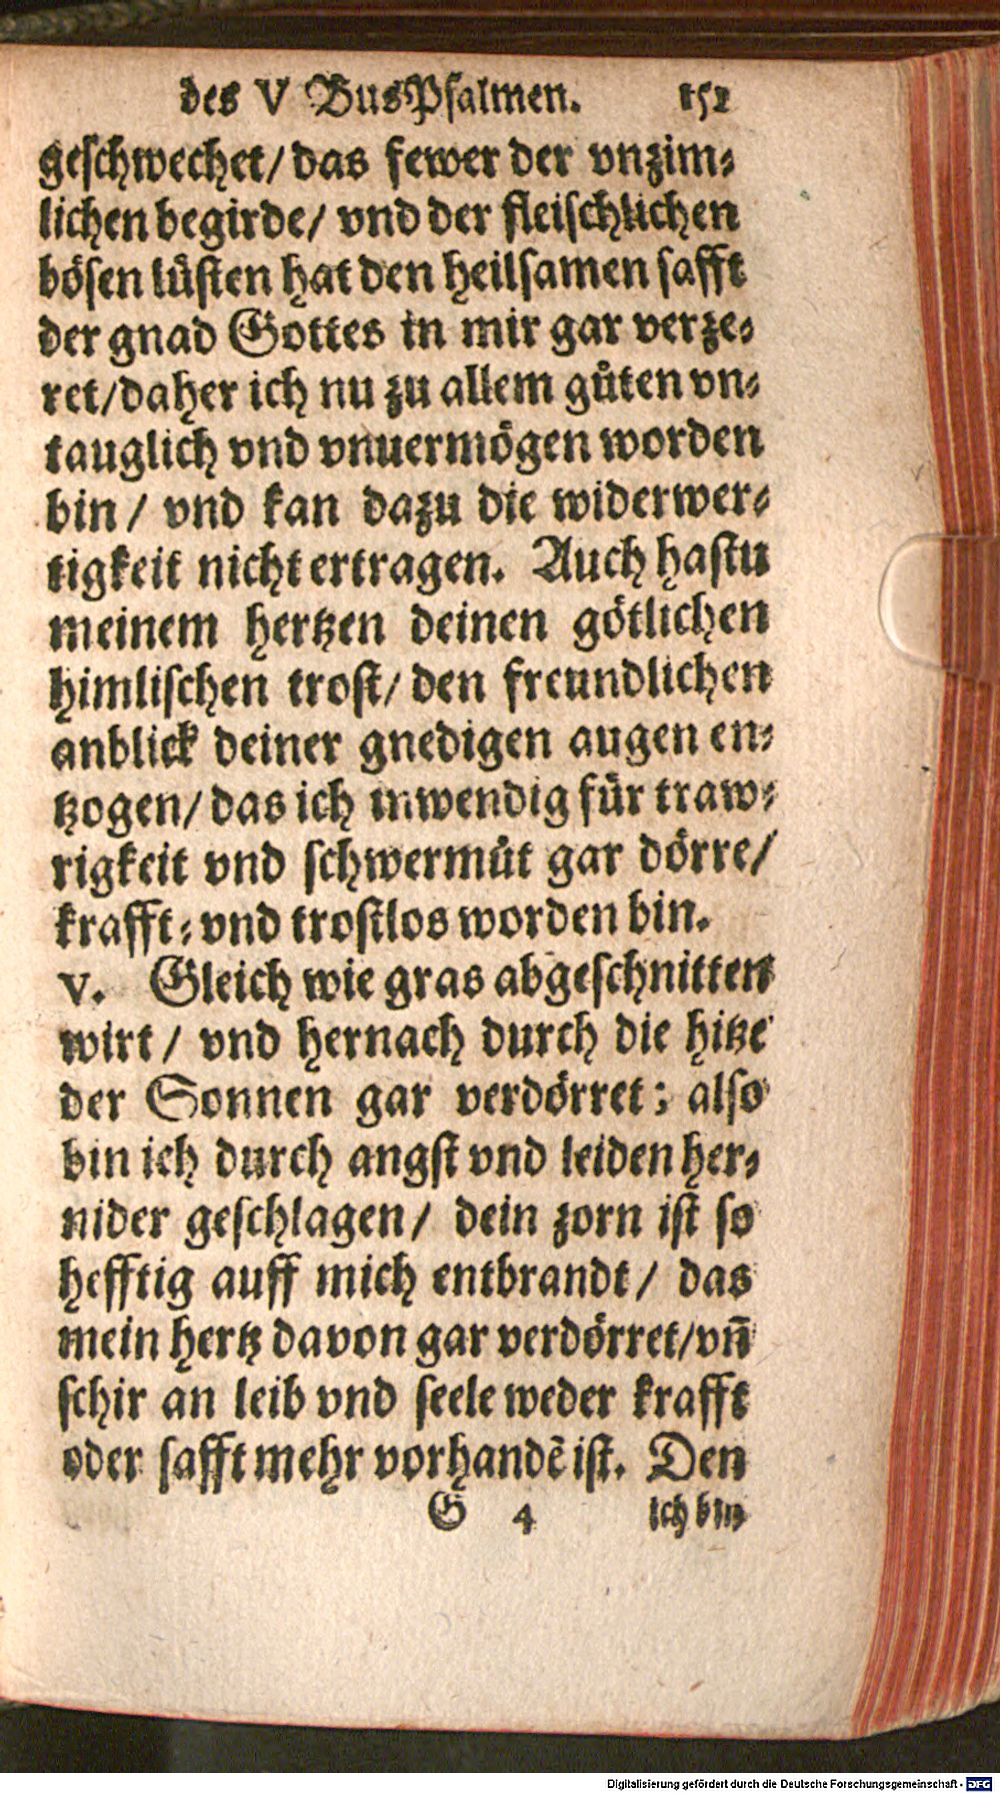 des V BusPsalmen. 152
geschwechet/ das fewer der vnzim⸗
lichen begirde/ vnd der fleischlichen
bösen lüsten hat den heilsamen safft
der gnad Gottes in mir gar verze⸗
ret/daher ich nu zu allem gůten vn⸗
tauglich vnd vnuermögen worden
bin / vnd kan dazu die widerwer⸗
tigkeit nicht ertragen. Auch hastu
meinem hertzen deinen götlichen
himlischen trost/ den freundlichen
anblick deiner gnedigen augen en⸗
tzogen/ das ich inwendig für traw⸗
rigkeit vnd schwermůt gar dörre/
krafft⸗ vnd trostlos worden bin.
v. Gleich wie gras abgeschnitten
wirt / vnd hernach durch die hitze
der Sonnen gar verdörret; also
bin ich durch angst vnd leiden her⸗
nider geschlagen/ dein zorn ist so
hefftig auff mich entbrandt/ das
mein hertz davon gar verdörret/vn̄
schir an leib vnd seele weder krafft
oder safft mehr vorhandē ist. Den
G 4 ich bin
Digitalisierung gefördert durch die Deutsche Forschungsgemeinschaft - DFG